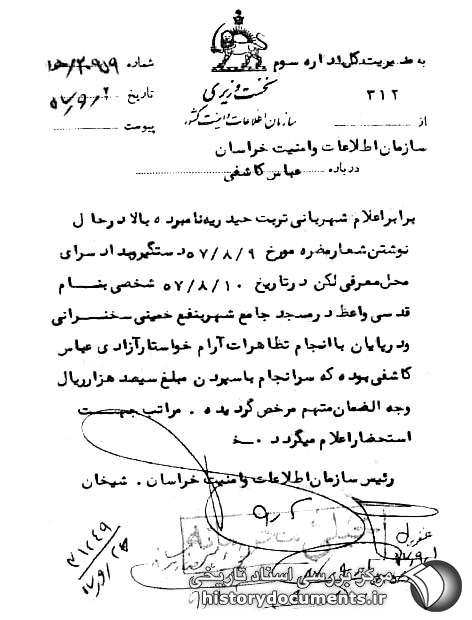 به مدیریت کل اداره سوم
۳۱۲
از
نخست وزیری
سازمان اطلاعات و امنیت کشور
شماره
تاریخ
پیوست
سازمان اطلاعات وامنیت خراسان
درباره عباس کاشفی
برابر اعلام شهربانی تربت حیدریه نامبرده بالا در حال
نوشتن شعار مضره مورخ ۵۷/۸/۹ دستگیر و بدادسرای
محل معرفی لکن در تاریخ ۵۷/۸/۱۰ شخصی بنام
قدسی واعظ در مسجد جامع شهر بنفع خمینی سخنرانی
و در پایان با انجام تظاهرات آرام خواستار آزادی عباس
کاشفی بوده که سرانجام با سپردن مبلغ سیصد هزار ریال
وجه الضمان متهم مرخص گردیده . مراتب جهت
استحضار اعلام میگردد .
رئیس سازمان اطلاعات وامنیت خراسان . شیخان
مرکز بررسی اسناد تاریخی
historydocuments.ir